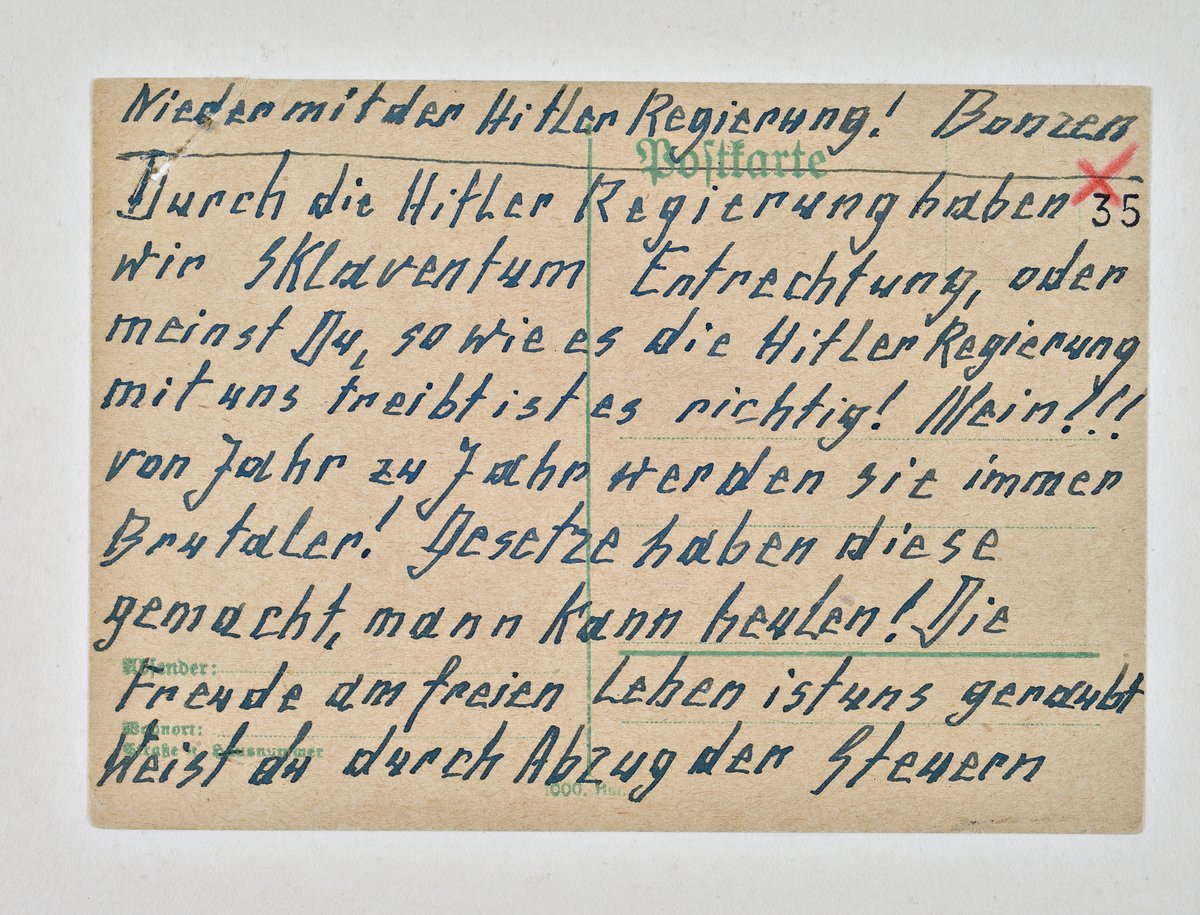 Nieder mit der Hitler Regierung! Bonzen
Postkarte
Durch die Hitler Regierung haben
35
wir Sklaventum Entrechtung, oder
meinst Du, so wie es die Hitler Regierung
mit uns treibt ist es richtig! Nein!!!
von Jahr zu Jahr werden sie immer
Brutaler! Gesetze haben diese
gemacht, mann kann heulen! Die
Absender:
Freude am freien Leben ist uns geraubt
Wohnort:
Straße u. Hausnummer
Weist du durch Abzug der Steuern